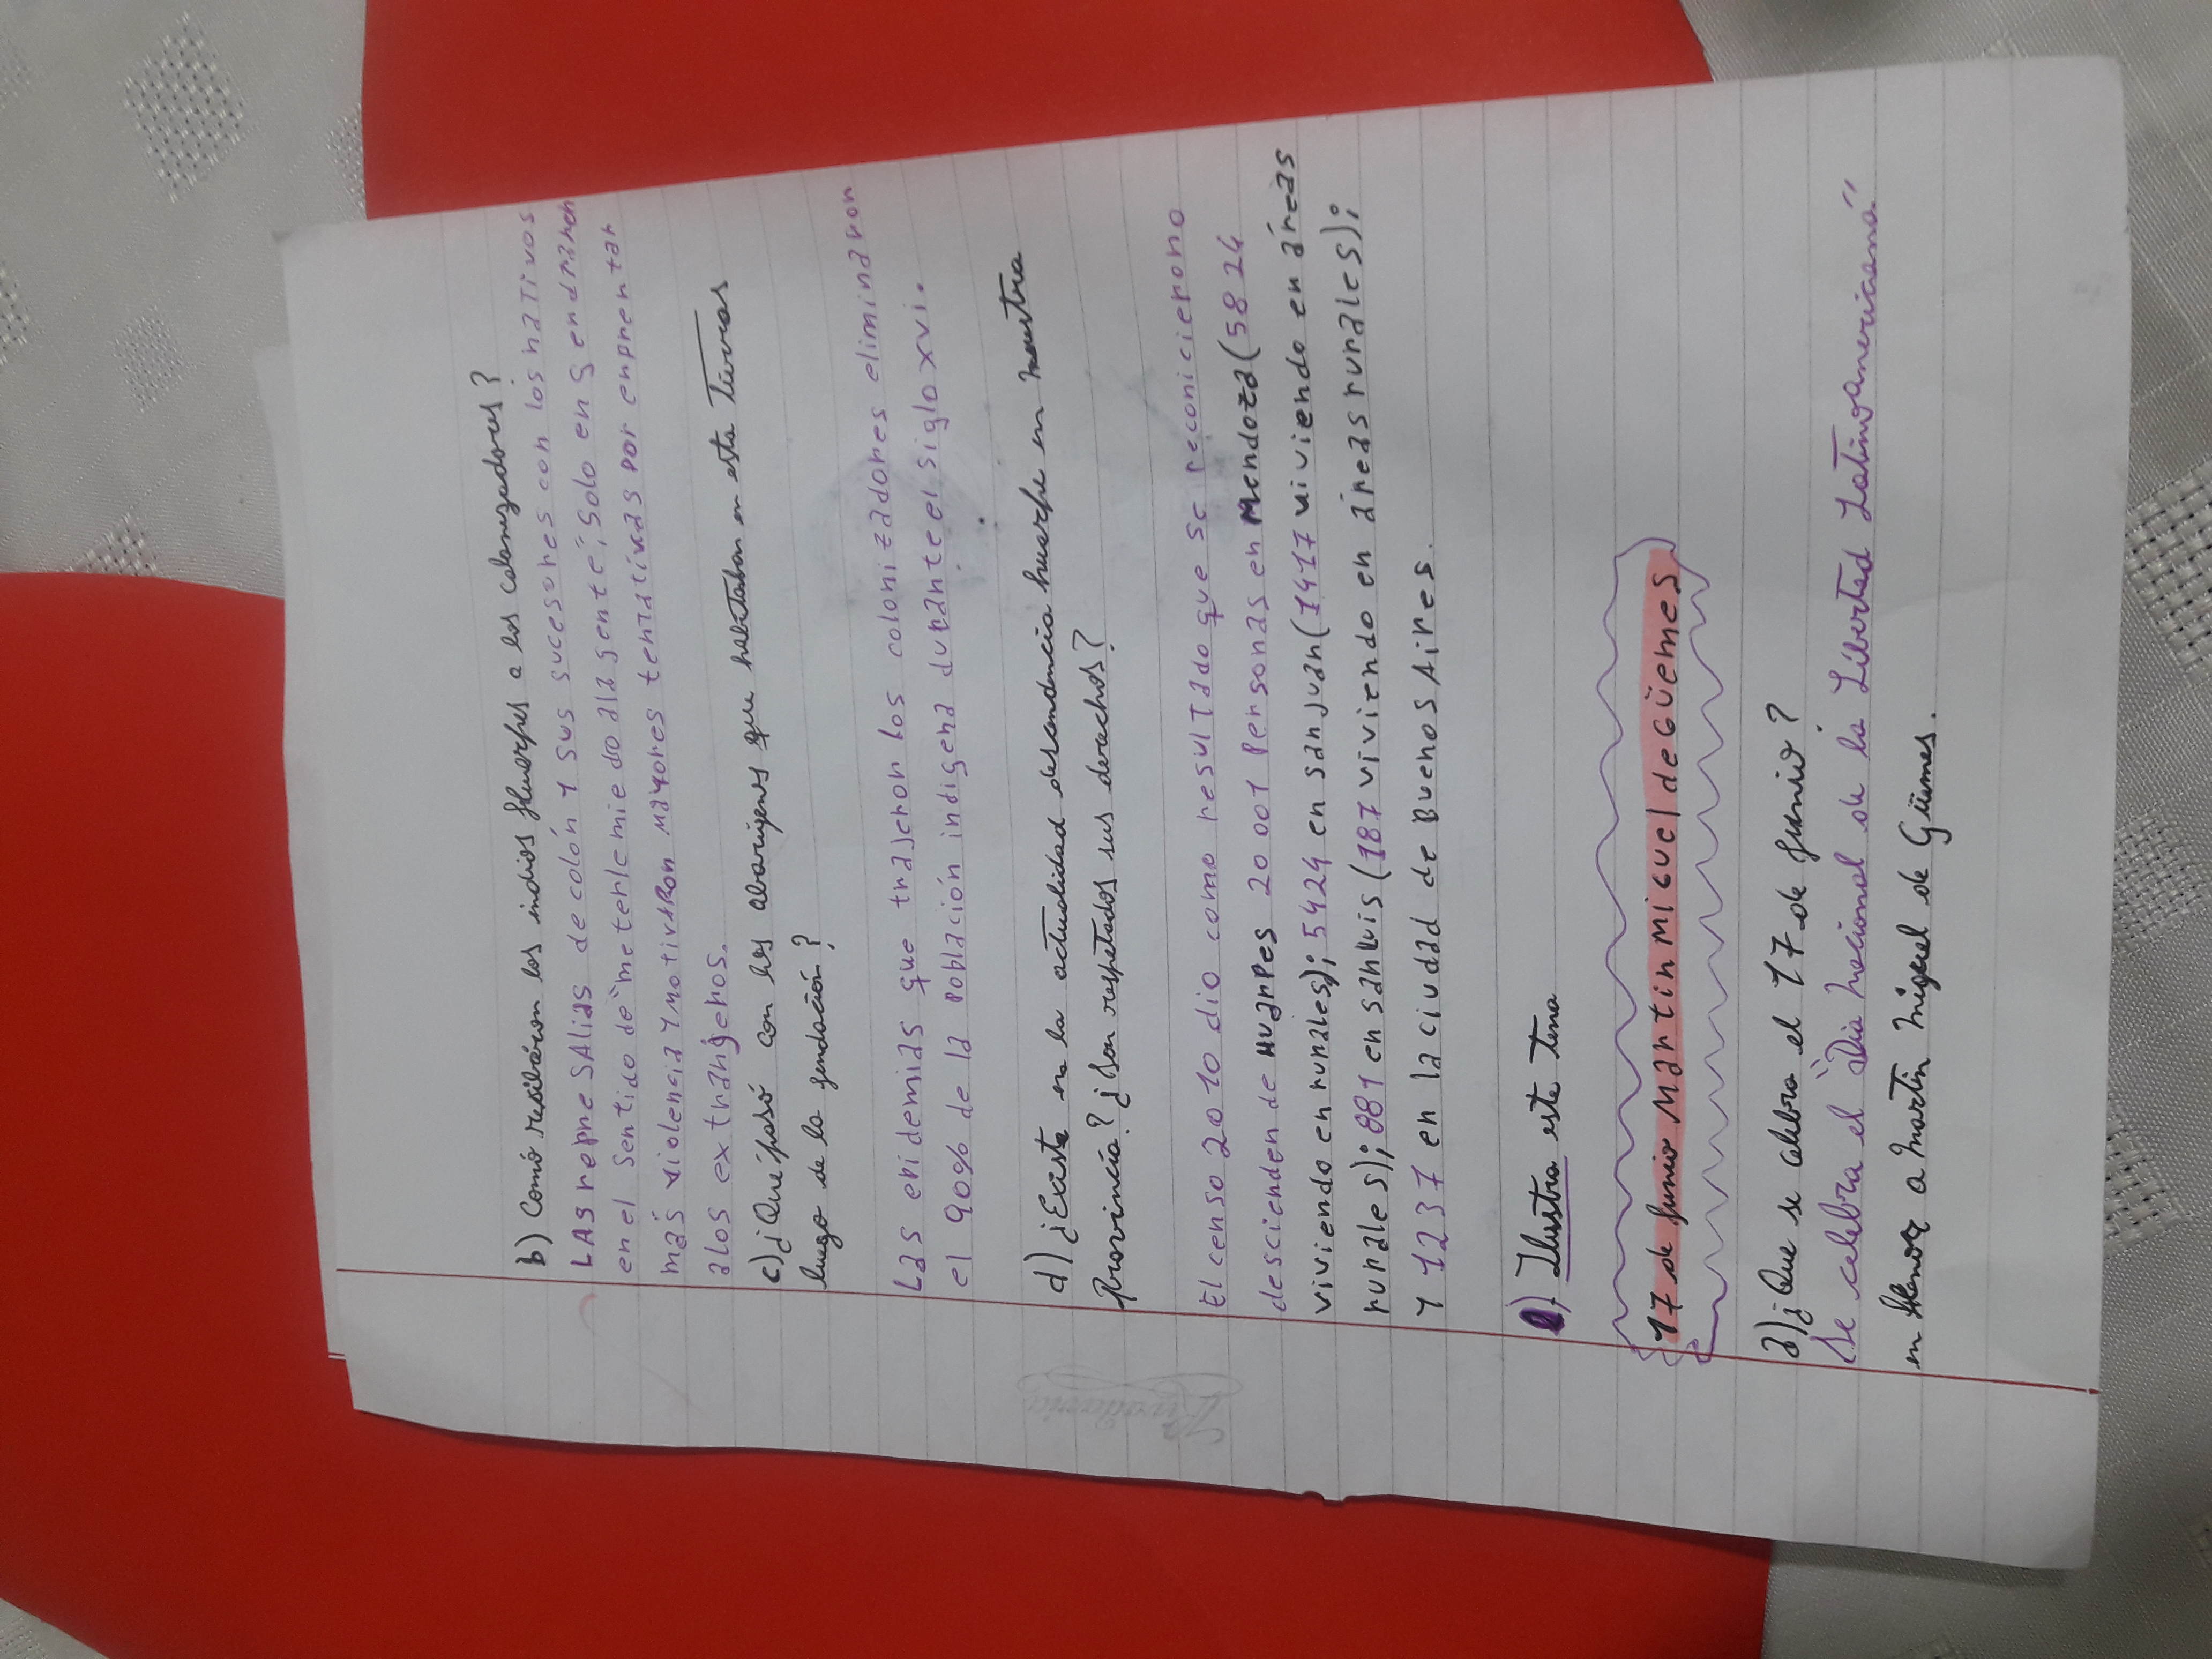 b) Comó resibiéron los indios Huarpes a los colonizadores?
LAS repreSAlias de colón y sus sucesores con los naTivos
en el sentido de "meterle miedo a la gente", solo engendraron
más violencia y motivaron mayores tentativas por enprentar
a los extranjeros.
c) ¿Qué pasó con los aborígenes que habitaban en esta tierras
luego de la fundación?
Las epidemias que trajeron los colonizadores eliminaron
el 90% de la población indigena durante el siglo xvi.
d) ¿Existe en la actualidad descendencia huarpe en nuestra
Provincia? ¿Son respetados sus derechos?
El censo 2010 dio como resultado que se reconicierono
descienden de Huarpes 20 001 Personas en Mendoza (5824
viviendo en rurales); 5424 en san juan (1417 viviendo en áreas
rurales); 881 en san Luis (187 viviendo en áreas rurales);
y 1237 en la ciudad de Buenos Aires.
e) Ilustra este tema
17 de junio Martin Miguel de Güemes
a) ¿Que se celebra el 17 de junio?
Se celebra el "Dia nacional de la Libertad Latinoamericana"
en Honor a Martín Miguel de Güemes.
Rivadavia